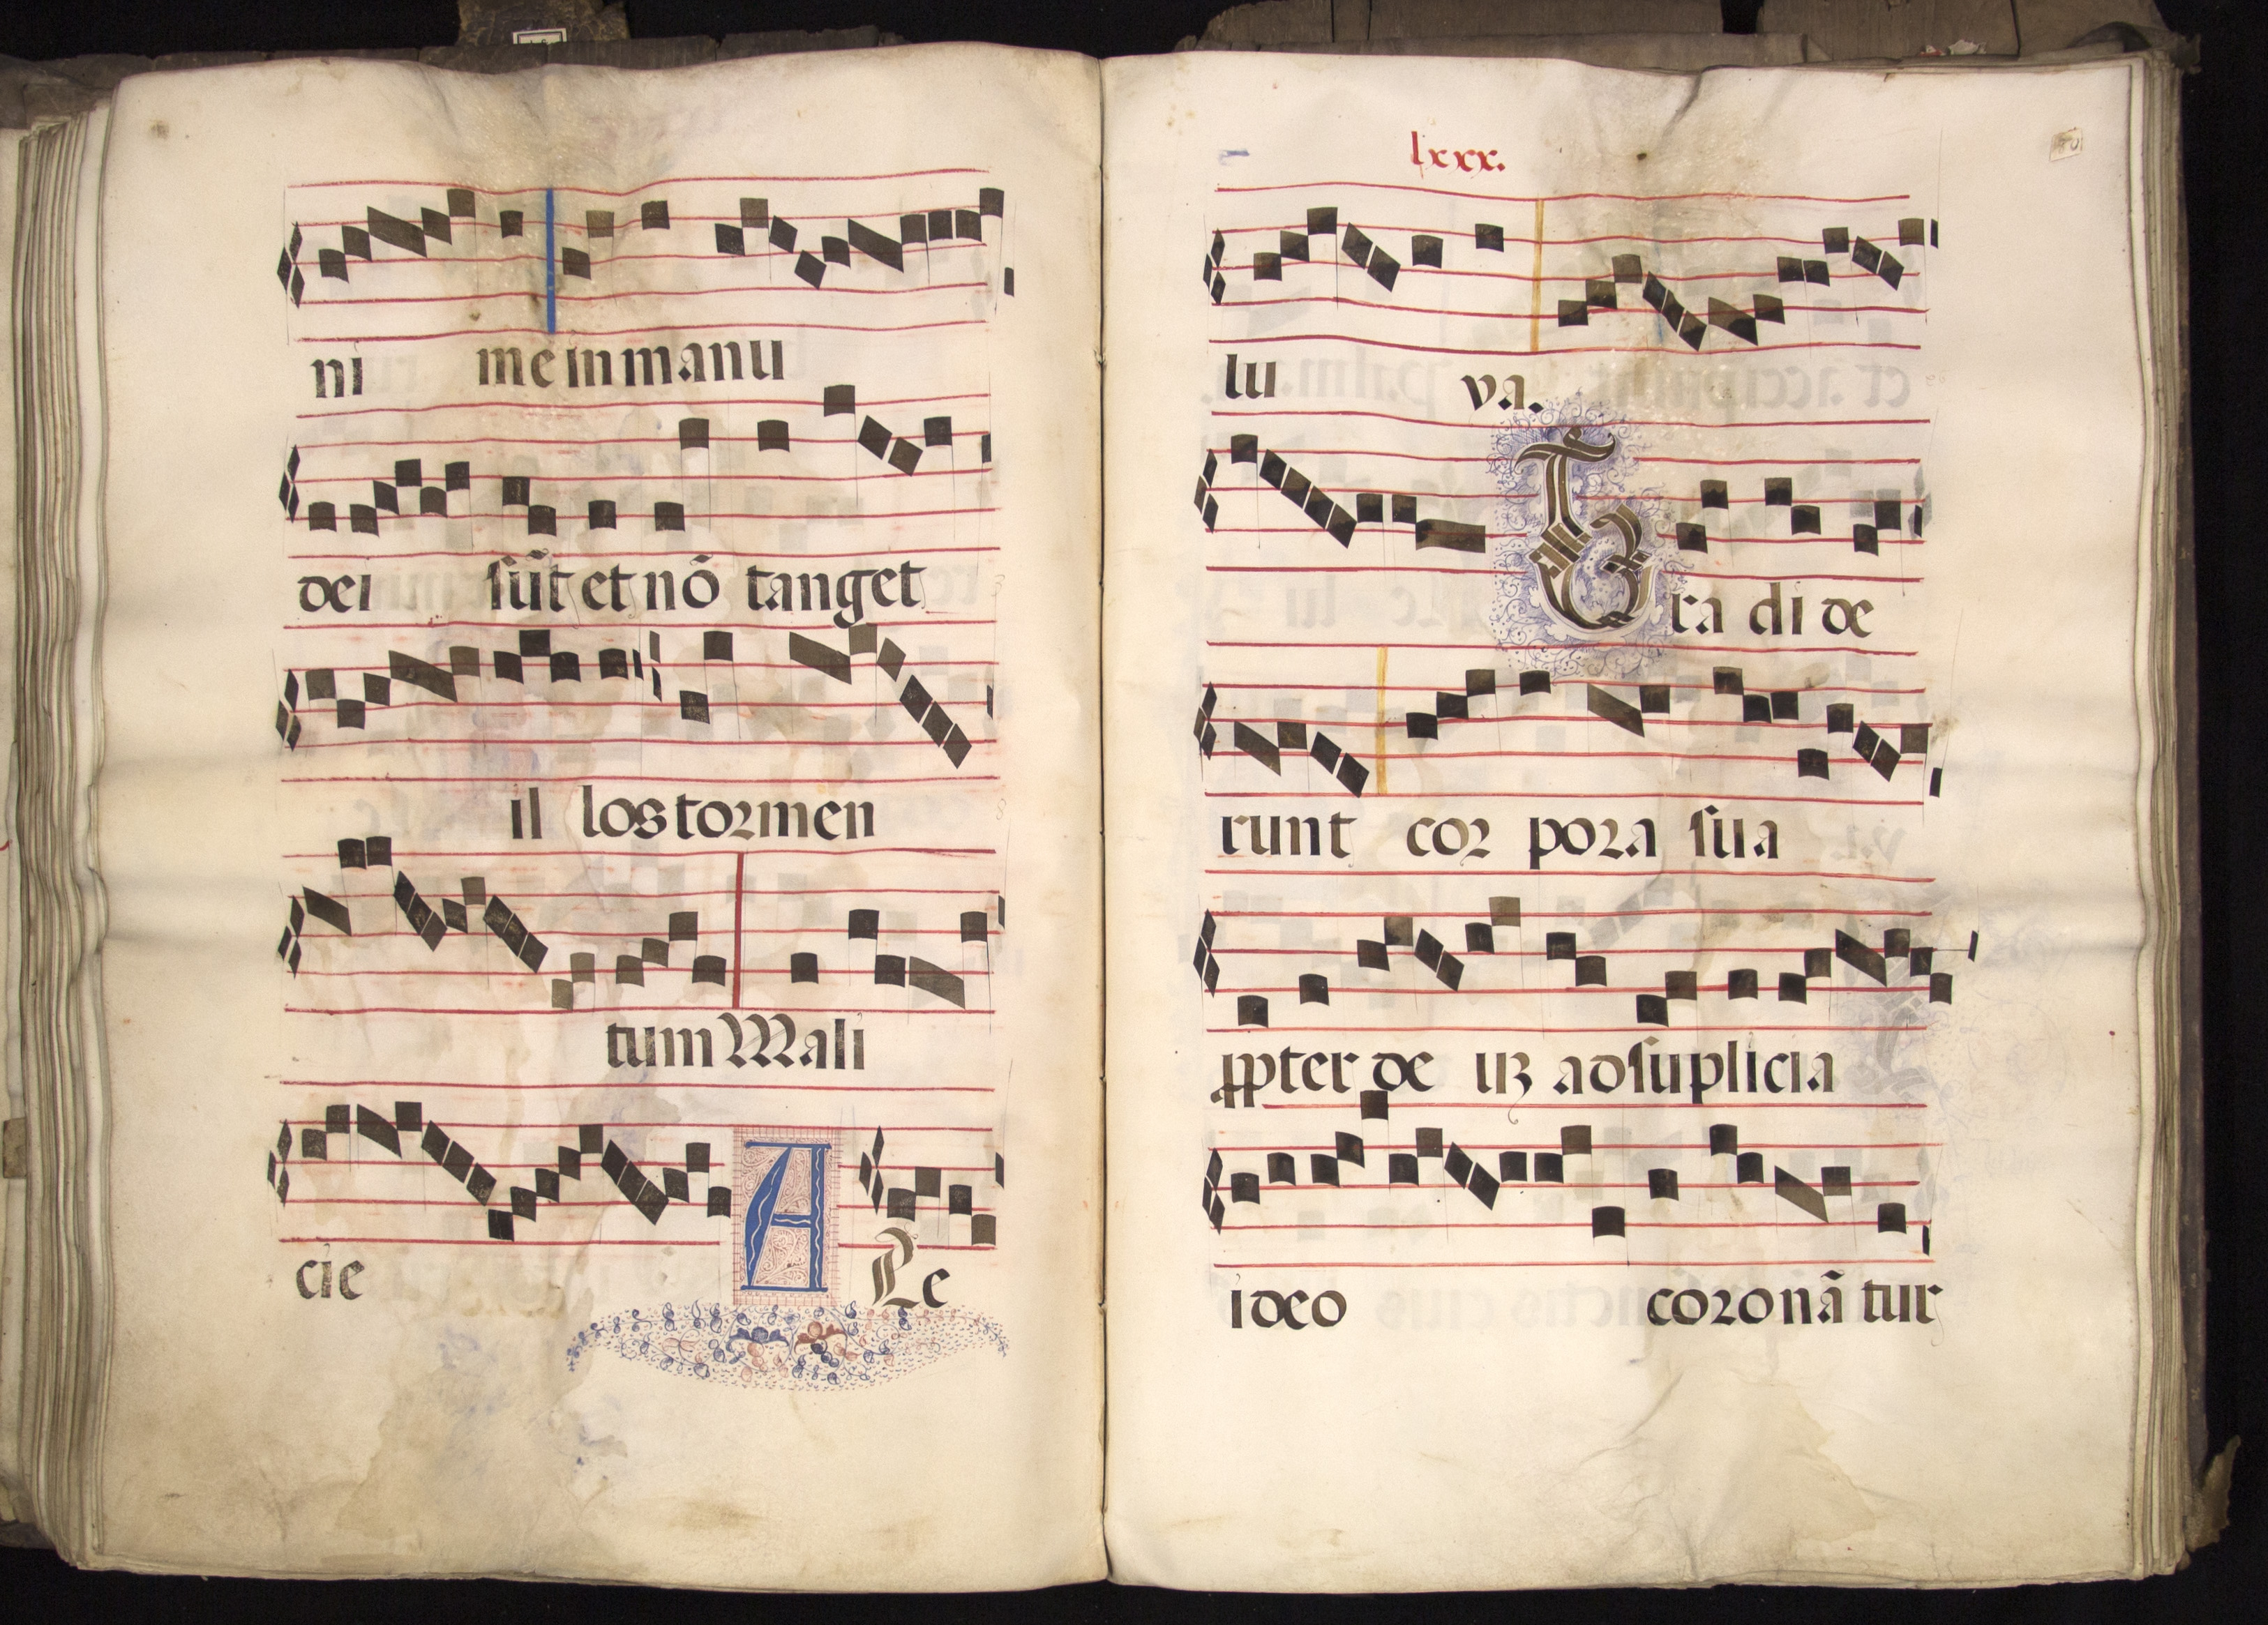 ni me in manu
dei sūt et nō tanget
il los tormen
tum Mali
cie A Le
lxxx.
80
lu va.
Tra di de
runt cor pora sua
ꝓpter de uʒ ad suplicia
ideo coronā tur